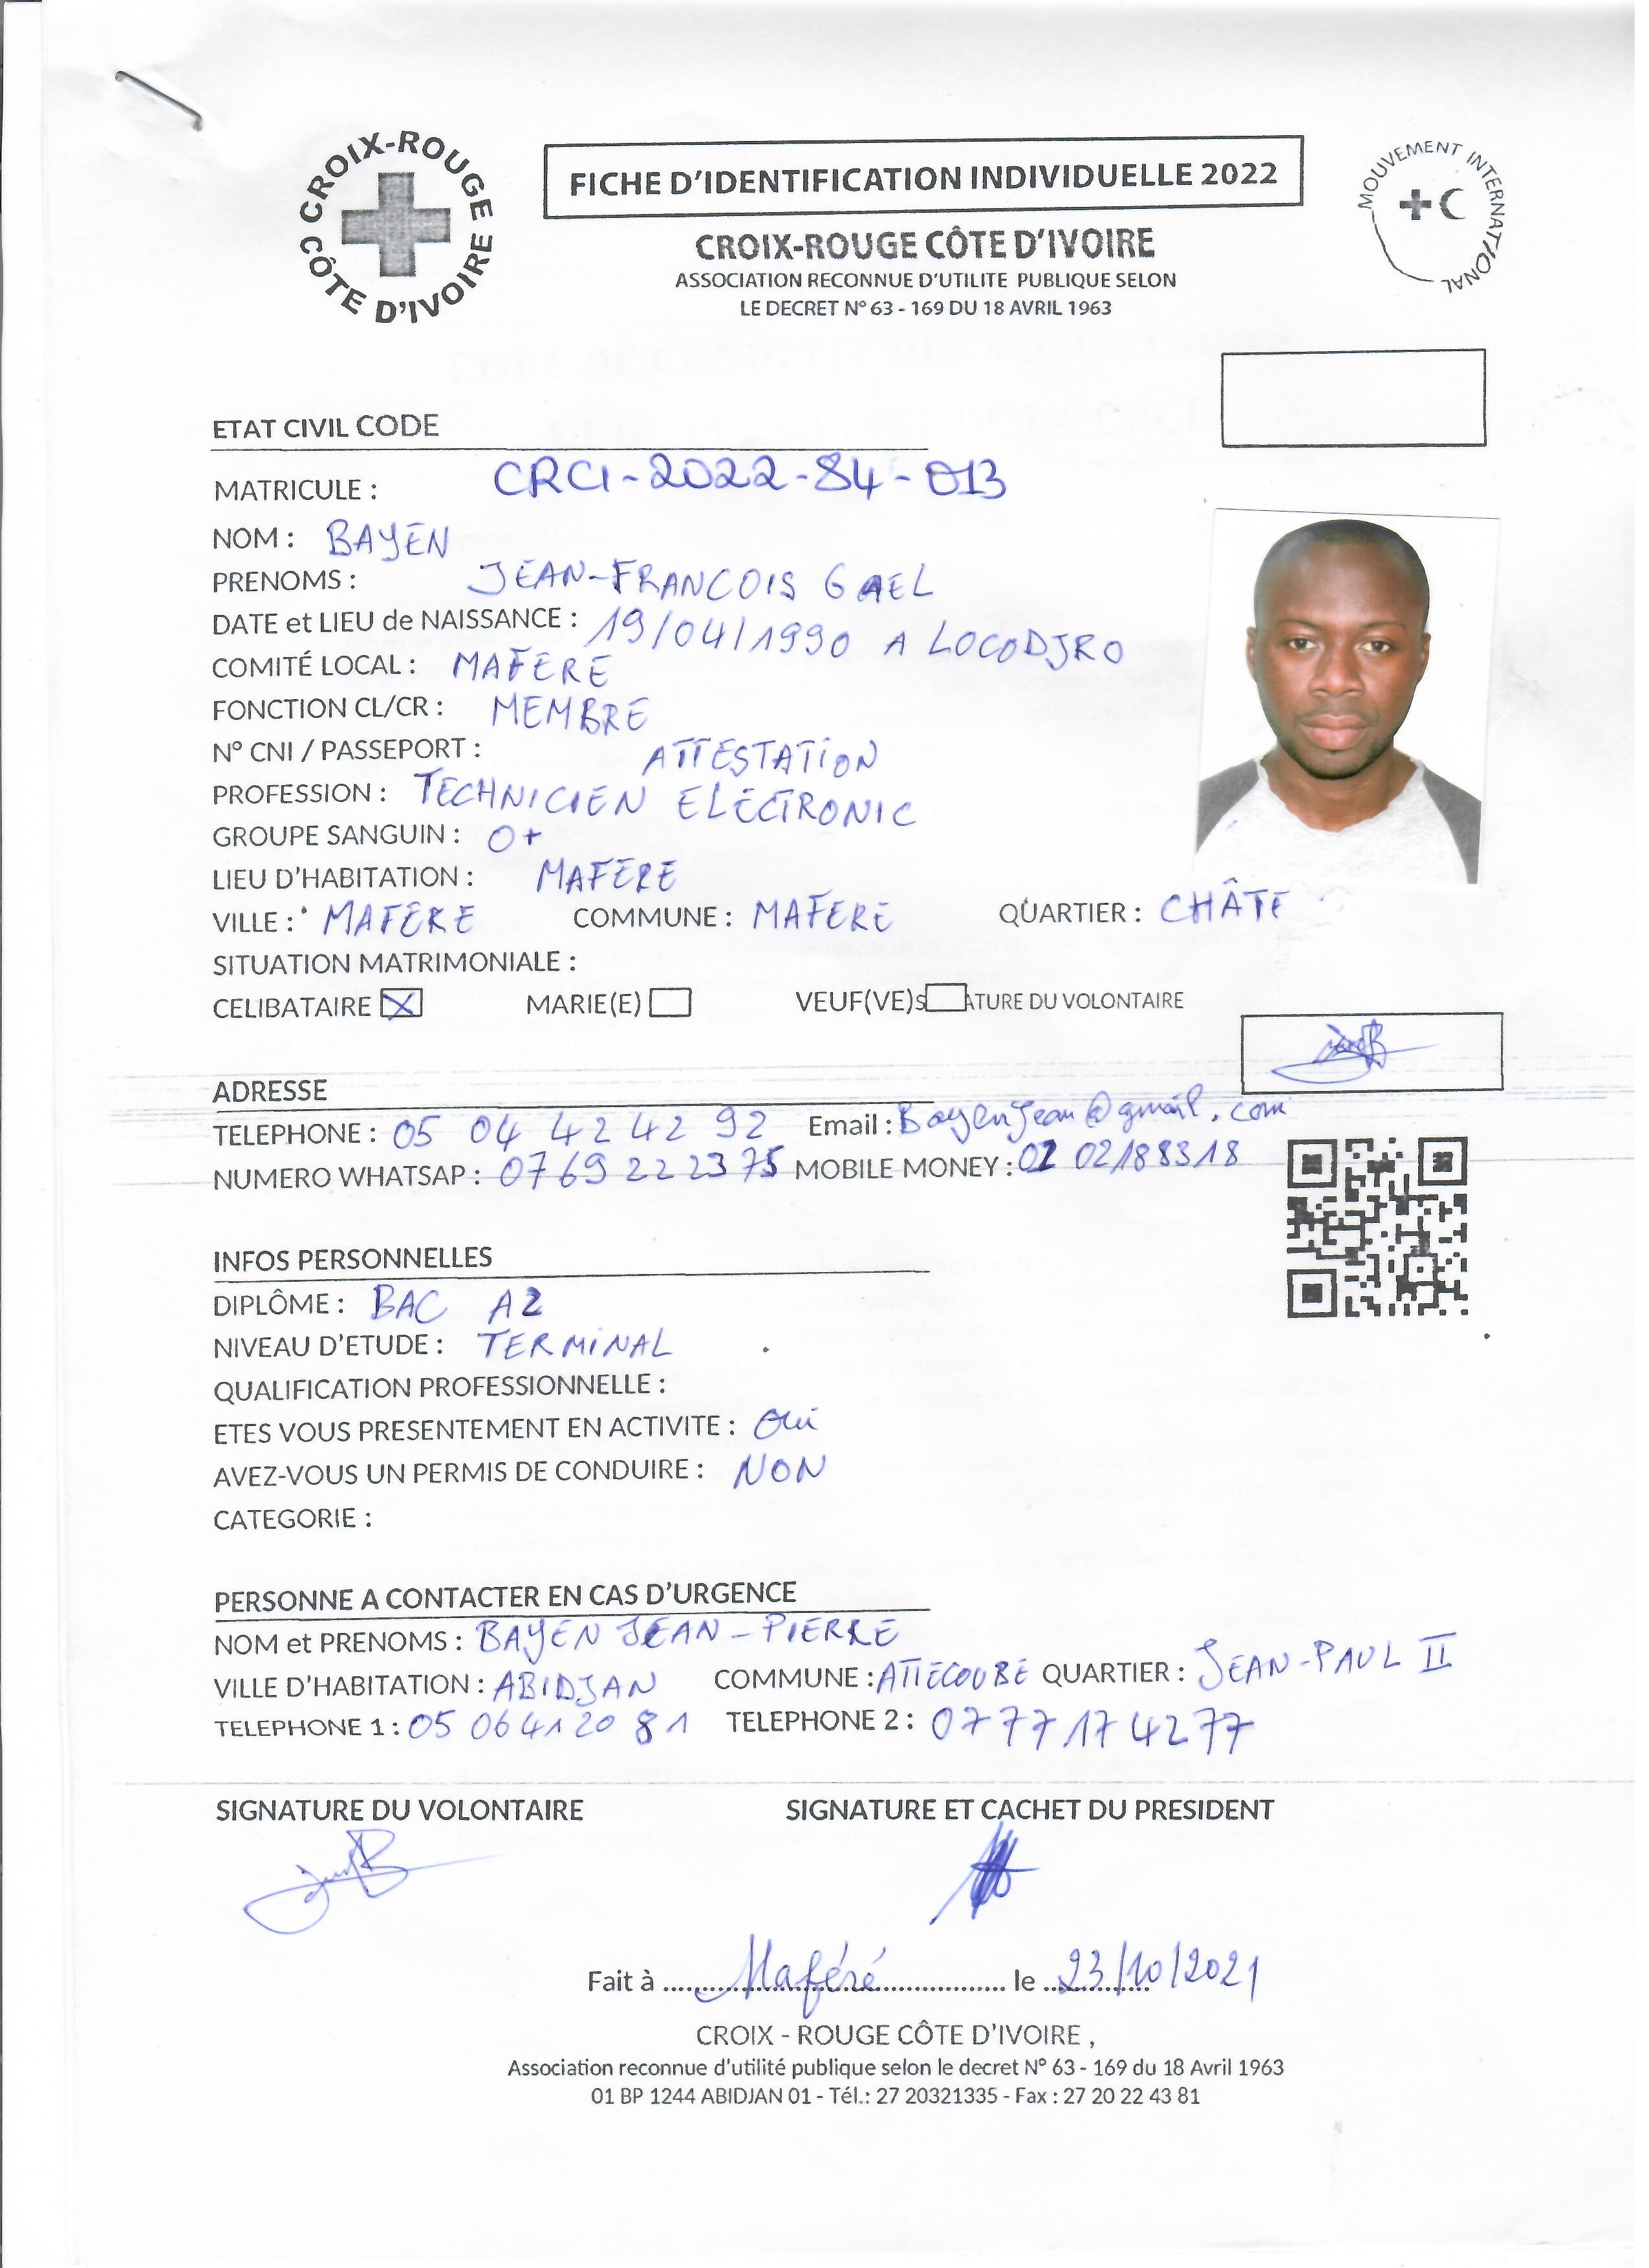 CROIX-ROUGE CÔTE D'IVOIRE
FICHE D'IDENTIFICATION INDIVIDUELLE 2022
MOUVEMENT INTERNATIONAL
CROIX-ROUGE CÔTE D'IVOIRE
ASSOCIATION RECONNUE D'UTILITE PUBLIQUE SELON
LE DECRET N° 63 - 169 DU 18 AVRIL 1963
ETAT CIVIL CODE
MATRICULE : CRCI-2022-84-013
NOM : BAYEN
PRENOMS : JEAN-FRANCOIS GAEL
DATE et LIEU de NAISSANCE : 19/04/1990 A LOCODJRO
COMITÉ LOCAL : MAFERE
FONCTION CL/CR : MEMBRE
N° CNI / PASSEPORT : ATTESTATION
PROFESSION : TECHNICIEN ELECTRONIC
GROUPE SANGUIN : O+
LIEU D'HABITATION : MAFERE
VILLE : MAFERE COMMUNE : MAFERE QUARTIER : CHÂTE
SITUATION MATRIMONIALE :
CELIBATAIRE X MARIE(E) VEUF(VE)S ATURE DU VOLONTAIRE
ADRESSE
TELEPHONE : 05 04 42 42 92 Email : Bayenjean@gmail.com
NUMERO WHATSAP : 07 69 22 23 75 MOBILE MONEY : 02188318
INFOS PERSONNELLES
DIPLÔME : BAC A2
NIVEAU D'ETUDE : TERMINAL
QUALIFICATION PROFESSIONNELLE :
ETES VOUS PRESENTEMENT EN ACTIVITE : Oui
AVEZ-VOUS UN PERMIS DE CONDUIRE : NON
CATEGORIE :
PERSONNE A CONTACTER EN CAS D'URGENCE
NOM et PRENOMS : BAYEN JEAN-PIERRE
VILLE D'HABITATION : ABIDJAN COMMUNE : ATTECOUBE QUARTIER : JEAN-PAUL II
TELEPHONE 1 : 05 06 41 20 81 TELEPHONE 2 : 07 77 17 42 77
SIGNATURE DU VOLONTAIRE SIGNATURE ET CACHET DU PRESIDENT
Fait à Maféré le 23/10/2021
CROIX - ROUGE CÔTE D'IVOIRE ,
Association reconnue d'utilité publique selon le decret N° 63 - 169 du 18 Avril 1963
01 BP 1244 ABIDJAN 01 - Tél.: 27 20321335 - Fax : 27 20 22 43 81